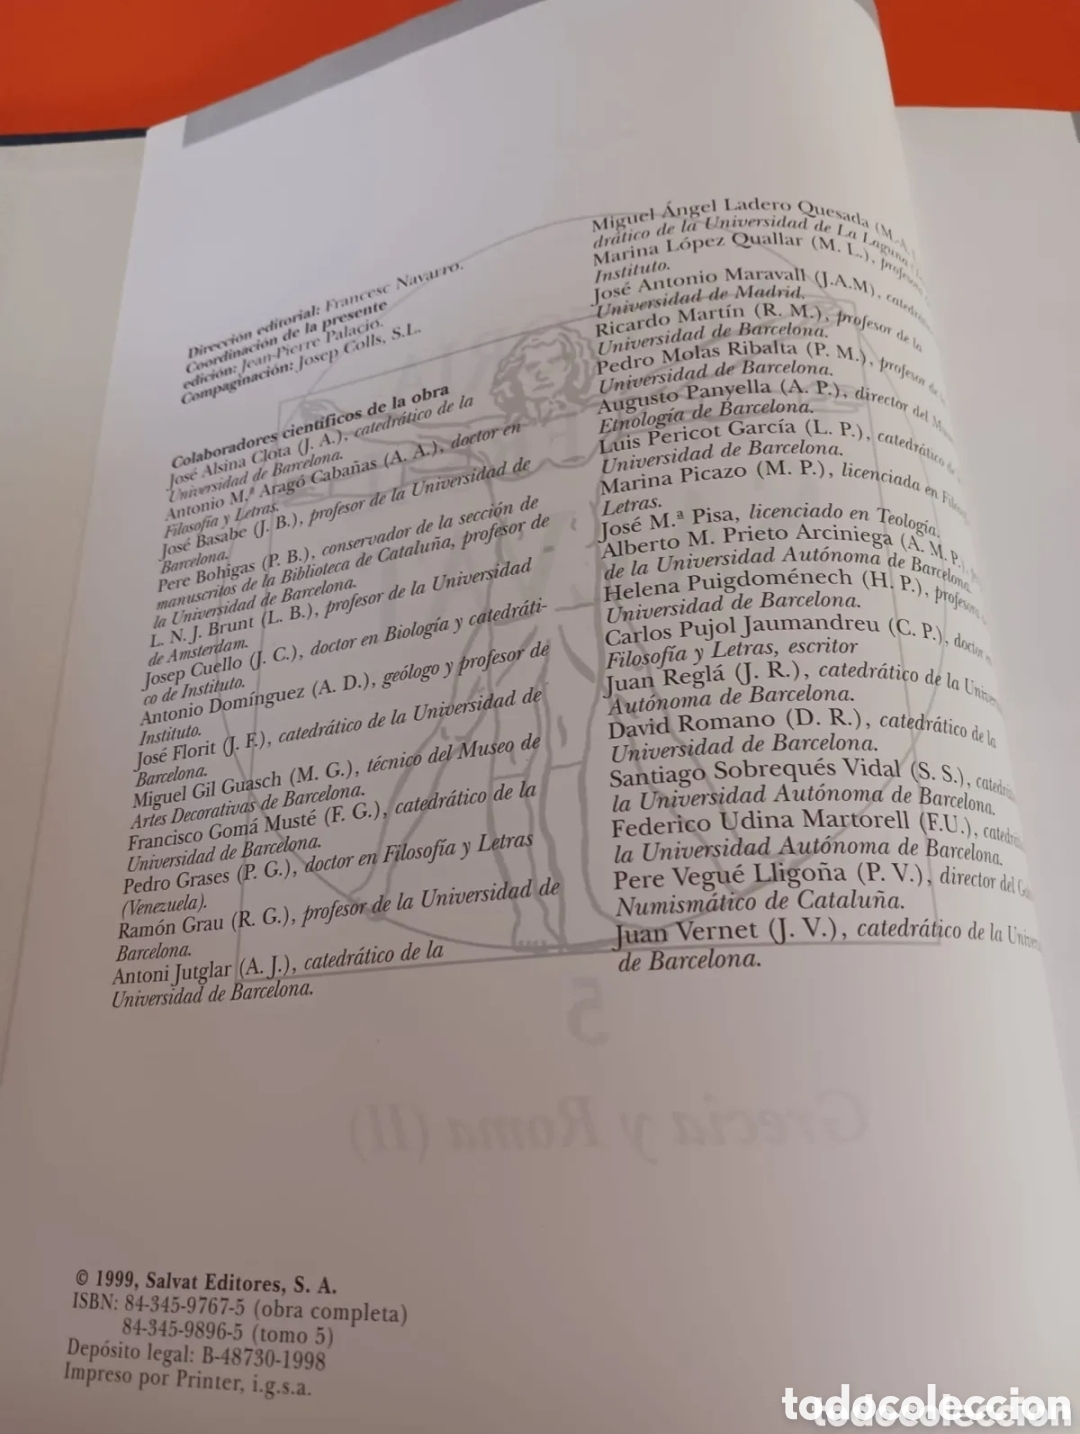 Dirección editorial: Francesc Navarro.
Coordinación de la presente
edición: Jean-Pierre Palacio.
Compaginación: Josep Colls, S.L.
Colaboradores científicos de la obra
José Alsina Clota (J. A.), catedrático de la
Universidad de Barcelona.
Antonio M.ª Aragó Cabañas (A. A.), doctor en
Filosofía y Letras.
José Basabe (J. B.), profesor de la Universidad de
Barcelona.
Pere Bohigas (P. B.), conservador de la sección de
manuscritos de la Biblioteca de Cataluña, profesor de
la Universidad de Barcelona.
L. N. J. Brunt (L. B.), profesor de la Universidad
de Amsterdam.
Josep Cuello (J. C.), doctor en Biología y catedráti-
co de Instituto.
Antonio Domínguez (A. D.), geólogo y profesor de
Instituto.
José Florit (J. F.), catedrático de la Universidad de
Barcelona.
Miguel Gil Guasch (M. G.), técnico del Museo de
Artes Decorativas de Barcelona.
Francisco Gomá Musté (F. G.), catedrático de la
Universidad de Barcelona.
Pedro Grases (P. G.), doctor en Filosofía y Letras
(Venezuela).
Ramón Grau (R. G.), profesor de la Universidad de
Barcelona.
Antoni Jutglar (A. J.), catedrático de la
Universidad de Barcelona.
Miguel Ángel Ladero Quesada (M.-A.
drático de la Universidad de La Laguna
Marina López Quallar (M. L.), profesora
Instituto.
José Antonio Maravall (J.A.M), 
Universidad de Madrid.
Ricardo Martín (R. M.), profesor de la
Universidad de Barcelona.
Pedro Molas Ribalta (P. M.), profesor de
Universidad de Barcelona.
Augusto Panyella (A. P.), director del
Etnología de Barcelona.
Luis Pericot García (L. P.), catedrático de
Universidad de Barcelona.
Marina Picazo (M. P.), licenciada en
Letras.
José M.ª Pisa, licenciado en Teología.
Alberto M. Prieto Arciniega (A. M. P.),
de la Universidad Autónoma de Barcelona.
Helena Puigdoménech (H. P.), profesora
Universidad de Barcelona.
Carlos Pujol Jaumandreu (C. P.), 
Filosofía y Letras, escritor
Juan Reglá (J. R.), catedrático de la
Autónoma de Barcelona.
David Romano (D. R.), catedrático de la
Universidad de Barcelona.
Santiago Sobrequés Vidal (S. S.),
la Universidad Autónoma de Barcelona.
Federico Udina Martorell (F.U.),
la Universidad Autónoma de Barcelona.
Pere Vegué Lligoña (P. V.), director del
Numismático de Cataluña.
Juan Vernet (J. V.), catedrático de la
de Barcelona.
5
Grecia y Roma (II)
© 1999, Salvat Editores, S. A.
ISBN: 84-345-9767-5 (obra completa)
84-345-9896-5 (tomo 5)
Depósito legal: B-48730-1998
Impreso por Printer, i.g.s.a.
todocoleccion
todocoleccion